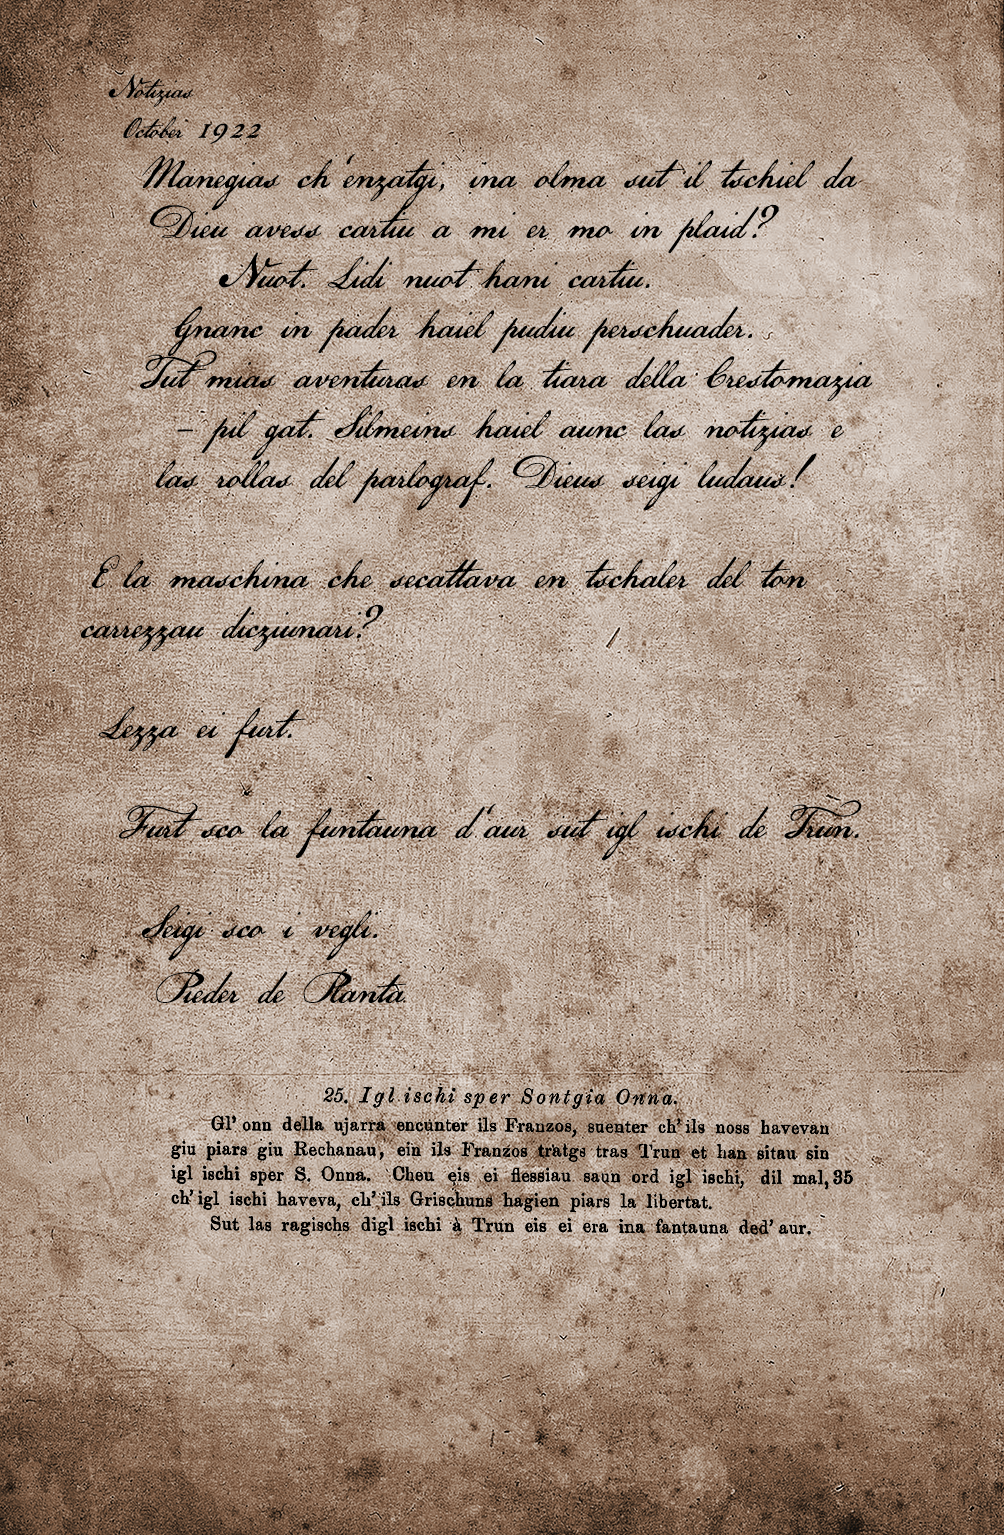 Notizias
October 1922
Manegias ch'enzatgi, ina olma sut il tschiel da
Dieu avess cartiu a mi er mo in plaid?
Nuot. Lidi nuot hani cartiu.
Gnanc in pader haiel pudiu perschuader.
Tut mias aventuras en la tiara della Crestomazia
– pil gat. Silmeins haiel aunc las notizias e
las rollas del parlograf. Dieus seigi ludaus!
E la maschina che secattava en tschaler del ton
carrezzau dicziunari?
Lezza ei furt.
Furt sco la funtauna d'aur sut igl ischi de Trun.
Seigi sco i vegli.
Pieder de Planta
25. Igl ischi sper Sontgia Onna.
Gl' onn della ujarra encunter ils Franzos, suenter ch' ils noss havevan
giu piars giu Rechanau, ein ils Franzos tratgs tras Trun et han sitau sin
igl ischi sper S. Onna. Cheu eis ei flessiau saun ord igl ischi, dil mal, 35
ch' igl ischi haveva, ch' ils Grischuns hagien piars la libertat.
Sut las ragischs digl ischi à Trun eis ei era ina fantauna ded' aur.